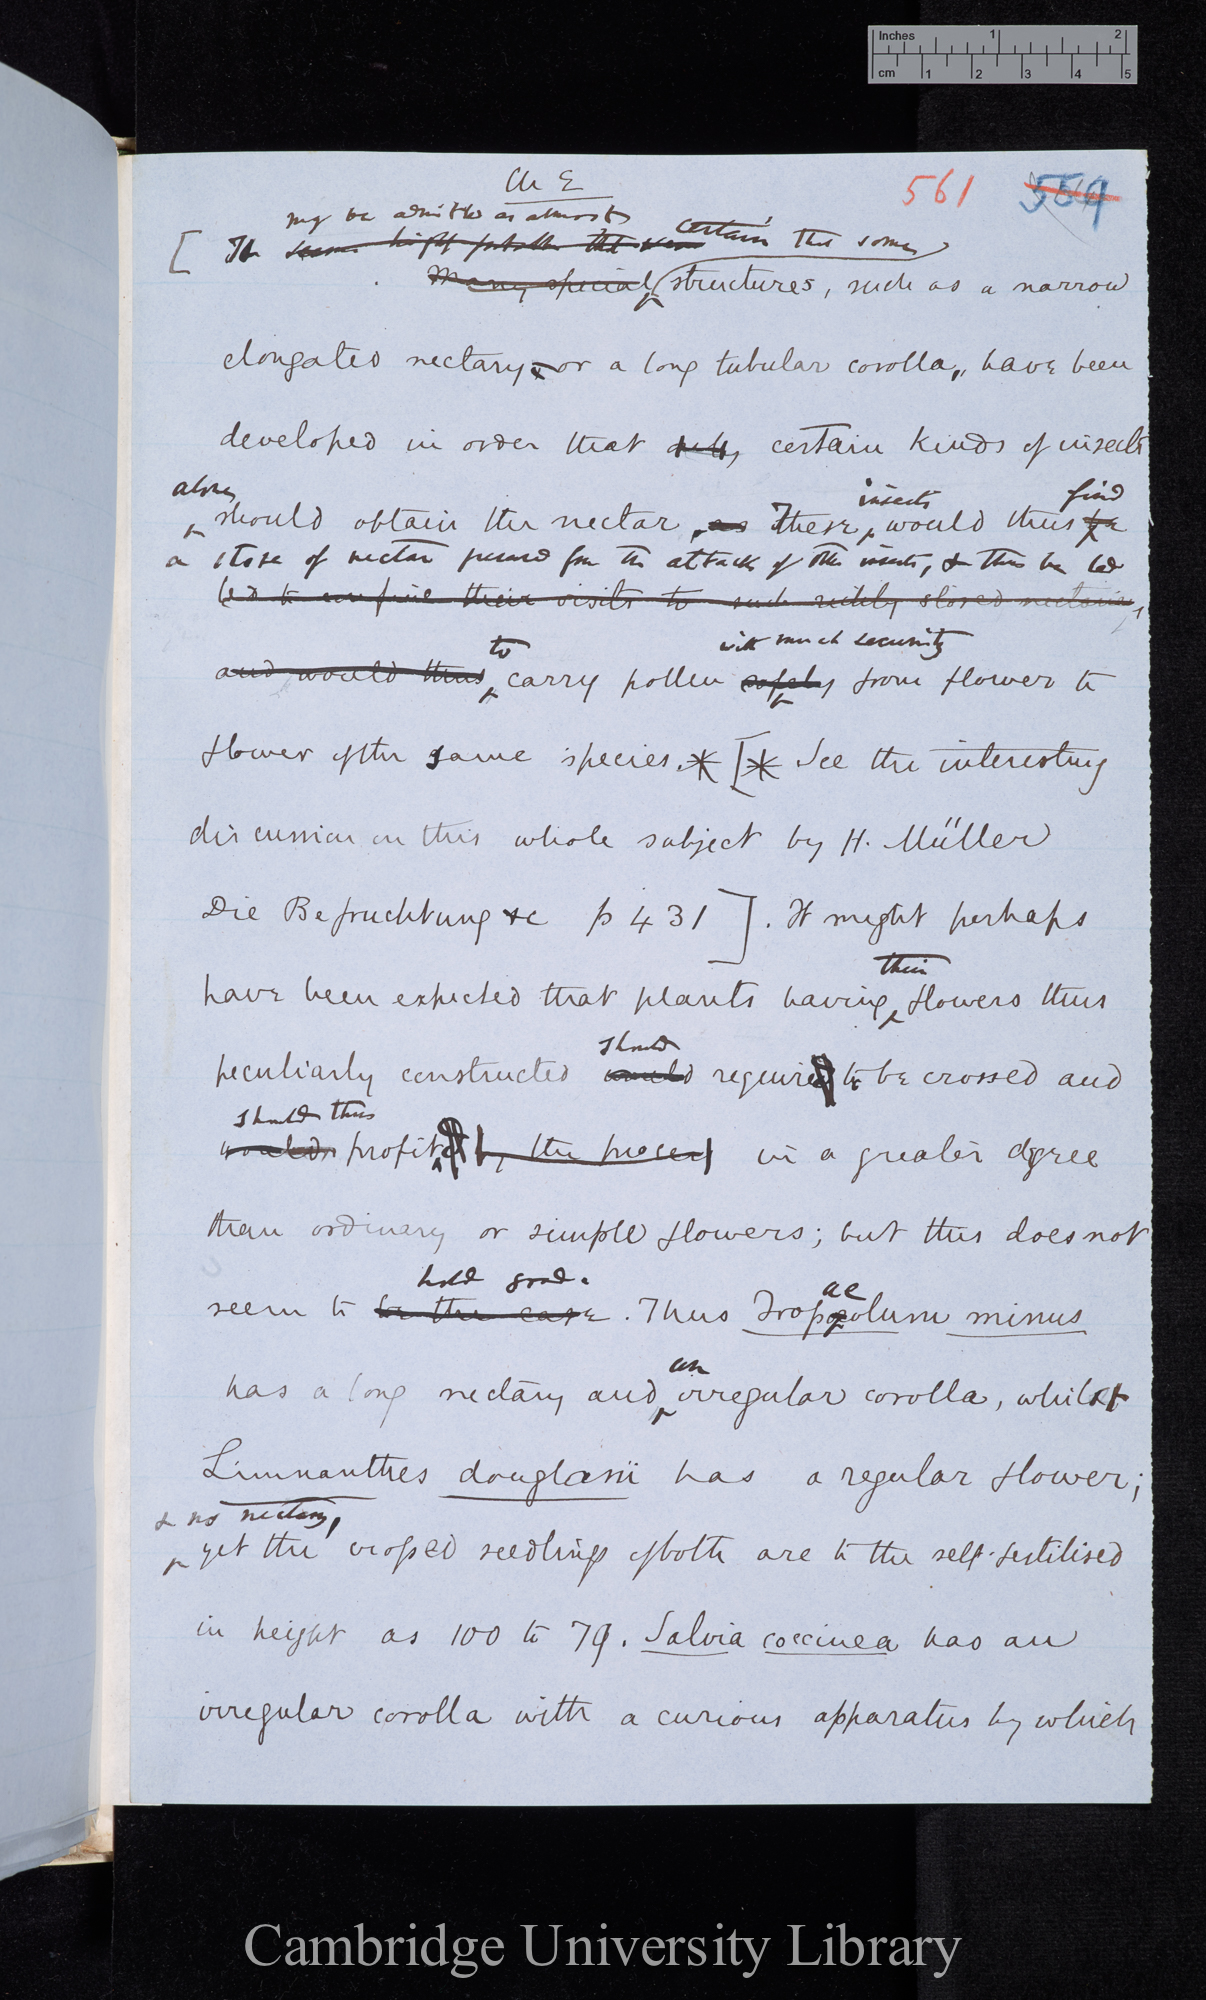 Inches 1 2
cm 1 2 3 4 5
Ch E
561 559
may be admitted as almost certain that some
[ It seems highly probable that some
Many special structures, such as a narrow
elongated nectary, or a long tubular corolla, have been
developed in order that certain kinds of insects
alone insects find
should obtain the nectar, as These would thus be
a store of nectar from the attack of other insects, & thus be led
led to confine their visits to such richly stored nectaries,
to with much security
and would thus carry pollen safely from flower to
flower of the same species.* [* See the interesting
discussion on this whole subject by H. Müller
Die Befruchtung &c p 431 ]. It might perhaps
their
have been expected that plants having flowers thus
should
peculiarly constructed would require to be crossed and
should thus
would profit by the process in a greater degree
than ordinary or simple flowers; but this does not
hold good.
seem to be the case. Thus Tropaeolum minus
ae
an
has a long nectary and irregular corolla, whilst
Limnanthes douglasii has a regular flower;
& no nectary,
yet the crossed seedlings of both are to the self-fertilised
in height as 100 to 79. Salvia coccinea has an
irregular corolla with a curious apparatus by which
Cambridge University Library